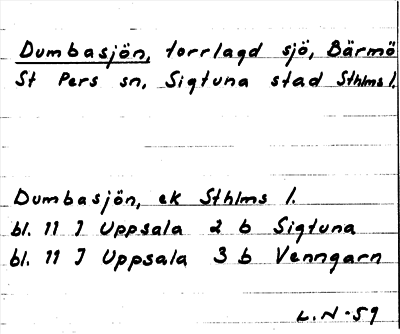 Dumbasjön, torrlagd sjö, Bärmö
St Pers sn, Sigtuna stad Sthlms l.
Dumbasjön, ek Sthlms l.
bl. 11 I Uppsala 2 b Sigtuna
bl. 11 I Uppsala 3 b Venngarn
L.N-59